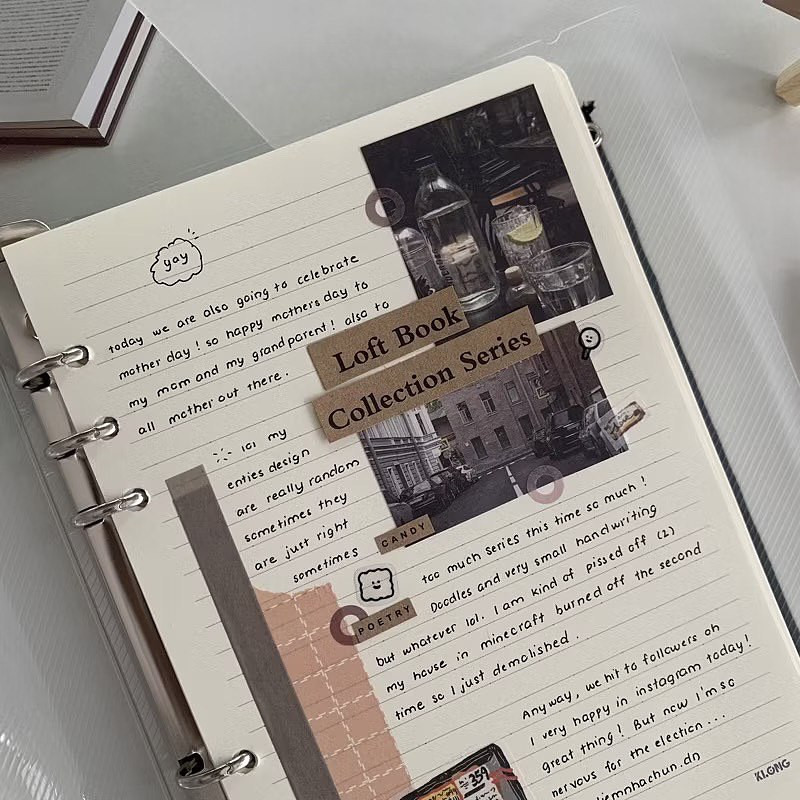 yay
today we are also going to celebrate
mother day! so happy mothers day to
my mom and my grandparent! also to
all mother out there.
Loft Book
Collection Series
lol my
enties design
are really random
sometimes they
are just right
sometimes
CANDY
POETRY
too much series this time so much!
Doodles and very small handwriting
but whatever lol. I am kind of pissed off (2)
my house in minecraft burned off the second
time so I just demolished.
Anyway, we hit to followers on
I very happy in instagram today!
great thing! But now I'm so
nervous for the election...
iemnhachun.dn
359
KLONG